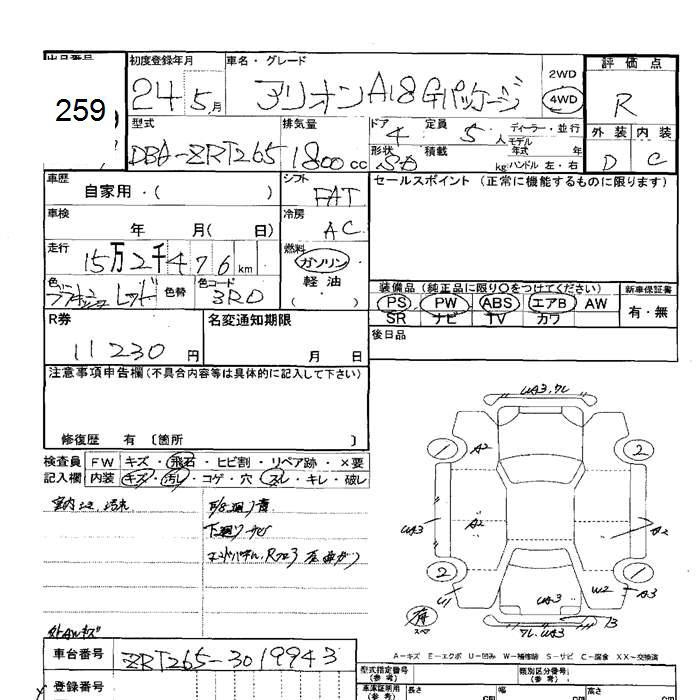 259
初度登録年月 24 5月
車名・グレード アリオン A18 Gパッケージ
2WD
4WD
評価点 R
外装 内装
D C
型式 DBA-ZRT265
排気量 1800cc
ドア 4 定員 5人
ディーラー・並行
モデル年式 年
形状 SD 積載 kg ハンドル 左・右
車歴 自家用・( )
シフト FAT
セールスポイント(正常に機能するものに限ります)
車検 年 月( 日)
冷房 AC
走行 15万2千476km
燃料 ガソリン
軽油
( )
色 レッド 色替 色コード 3R0
装備品(純正品に限り○をつけてください) 新車保証書
PS PW ABS エアB AW 有・無
SR ナビ TV カワ
R券 11230円
名変通知期限 月 日
後日品
注意事項申告欄(不具合内容等は具体的に記入して下さい)
修復歴 有 〔箇所 〕
検査員 FW キズ・飛石・ヒビ割・リペア跡・×要
記入欄 内装 キズ・汚れ・コゲ・穴・スレ・キレ・破レ
下廻りサビ
UA3, ワレ
1 A2 2
UA3 A2 A2
2 1
U1 UA3 W2 A3
有 スペア
13
ワレ, UA3
外AWキズ
A-キズ E-エクボ U-凹み W-補修跡 S-サビ C-腐食 XX-交換済
車台番号 ZRT265-3019943
型式指定番号(参考) 類別区分番号(参考)
登録番号
車庫証明用(参考) 長さ cm 幅 cm 高さ cm